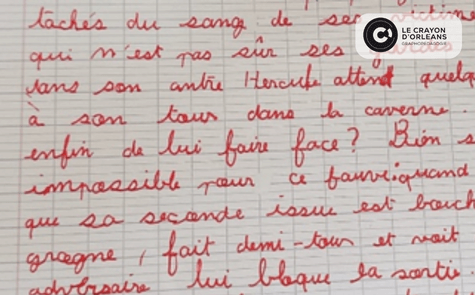 tachés du sang de ses victimes
LE CRAYON D'ORLEANS
GRAPHOPEDAGOGIE
qui n'est pas sûr ses
dans son antre Hercule attend quelq
à son tour dans la caverne
enfin de lui faire face? Bien s
impossible pour ce fauve: quand
que sa seconde issue est bouch
grogne, fait demi-tour et voit
adversaire lui bloque la sorti